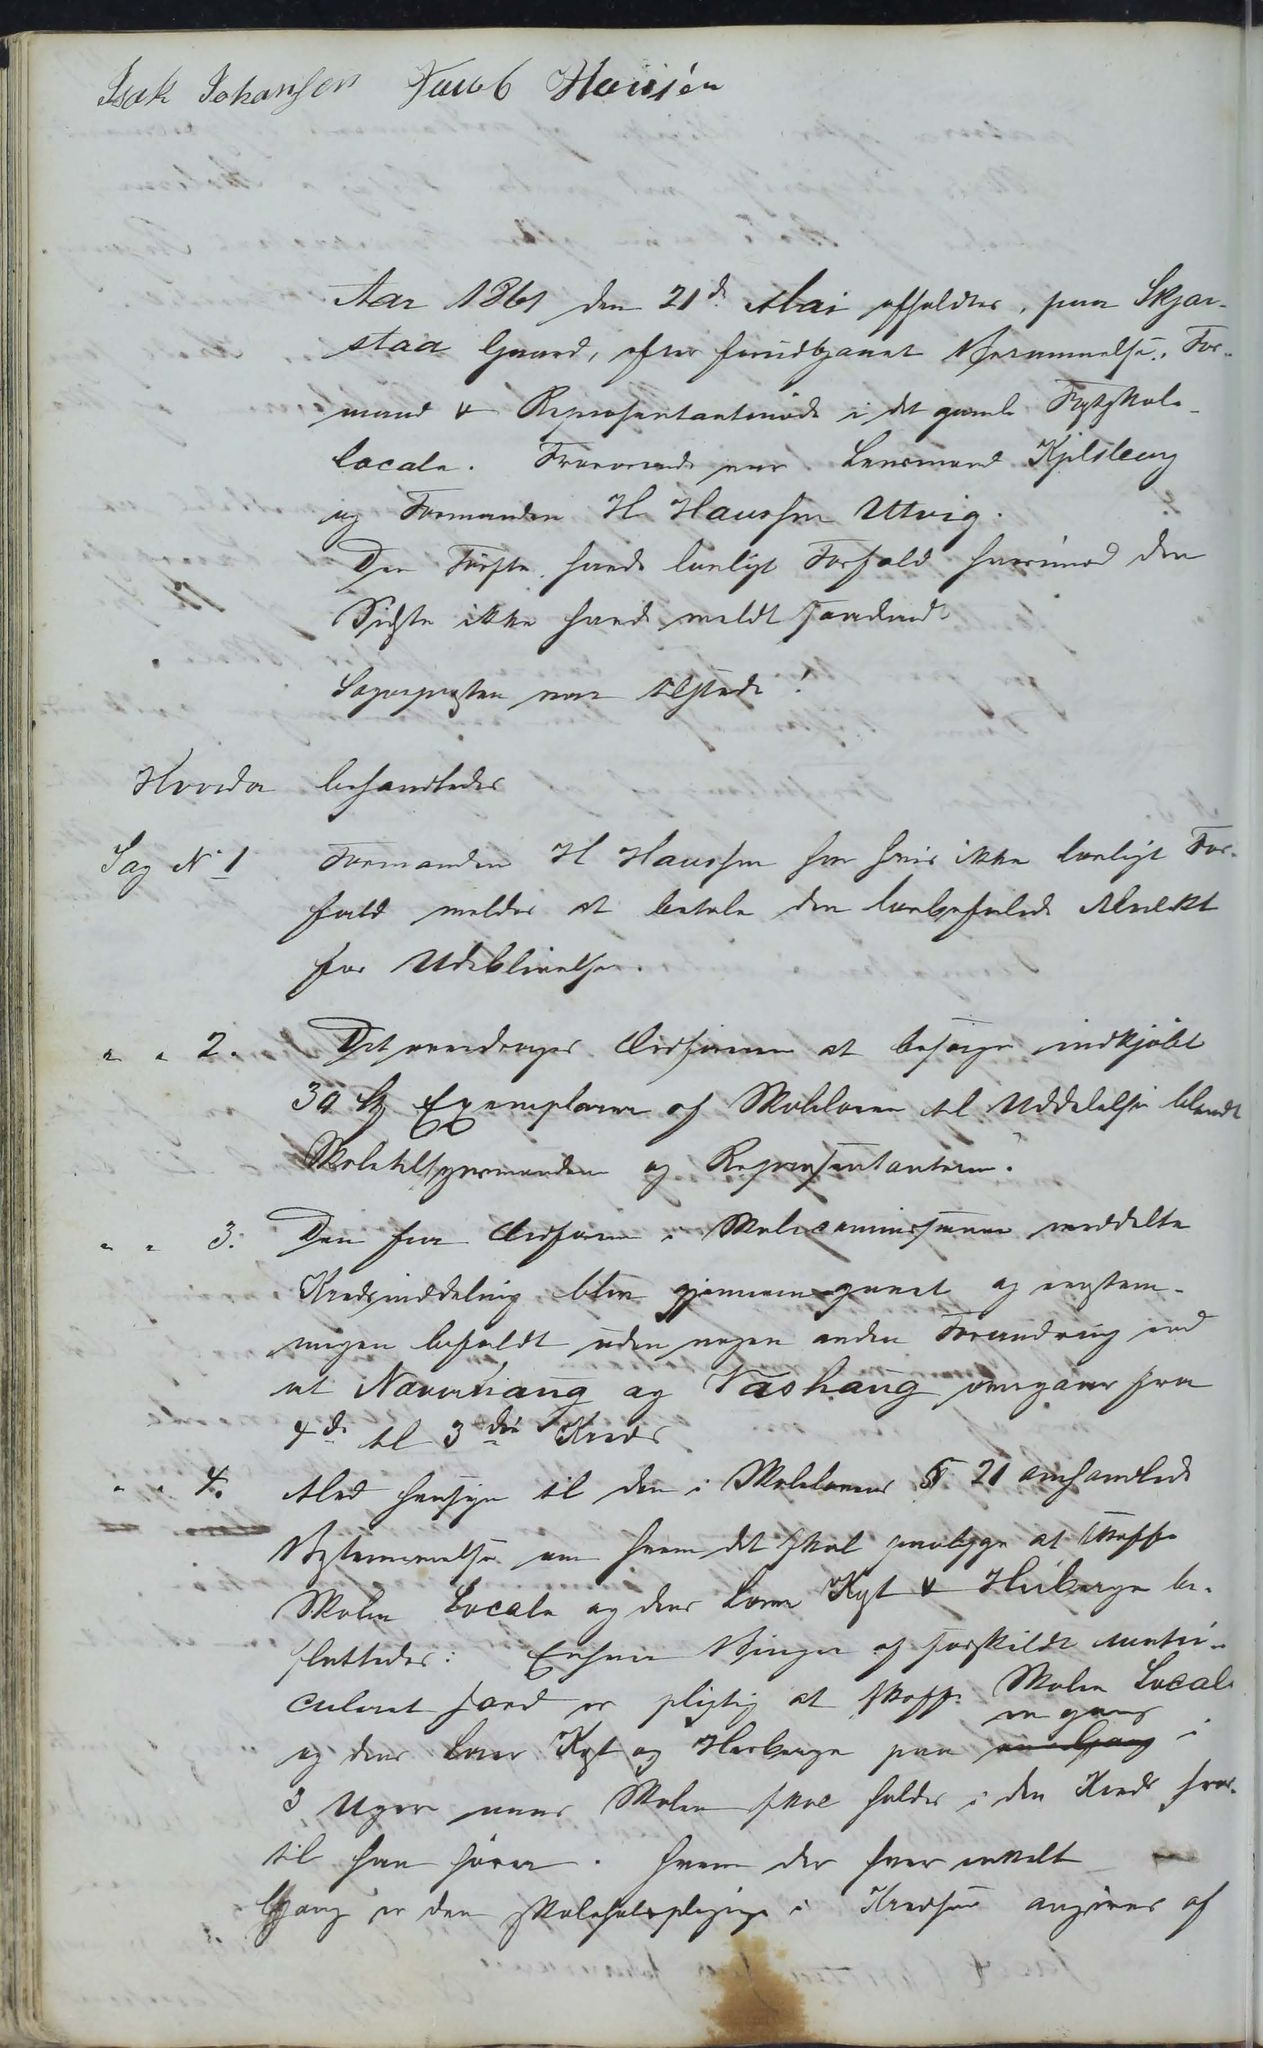 Isak Johansen Jacob Hansen
Aar 1861 den 21de Mai afholdtes, paa Skjær-
staa Gaard, efter forudgaaet Berammelse, For-
mand & Repræsentantmøde i det gamle Fastskole-
locale. Fraværende var Lensmand Kjelsberg
og Formanden H Hanssen Utvig.
Den Første havde lovligt Forfald hvorimod den
Sidste ikke havde meldt saadant.
Sognepresten var tilstede!
Hvorda behandledes
Sag No 1 Formanden H Hanssen har hvis ikke lovligt For-
fald meldes at betale den lovbefalede Mulkt
for Udeblivelse.
" " 2. Det overdroges Ordføreren at besørge indkjøbt
30 Exemplarer af Skoleloven til Uddelelse blandt
Skoletilsynsmændene og Repræsentanterne.
" " 3. Den fra Ordføreren i Skolecommissionen meddelte
Kredsinddeling blev gjennemgaaet og enstem-
migen befaldt uden nogen anden Forandring end
at Naurhaug og Vashaug overgaaer fra
4de til 3die Kreds
" " 4. Med Hensyn til den i Skolelovens § 21 omhandlede
Bestemmelse om hvem det skal paalygge at skaffe
Skolen Locale og dens Lærer Kost & Herberge be-
sluttedes: Enhver Bruger af særskildt matri-
culeret Jord er pligtig at skaffe Skolen Locale
en gang
og dens Lærer Kost og Herberge paa en Gang i
3 Uger naar Skolen skal holdes i den Kreds hvor-
til han hører. Hvem der hver enkelt
Gang er den skoleholdspligtige i Kredsen angives af